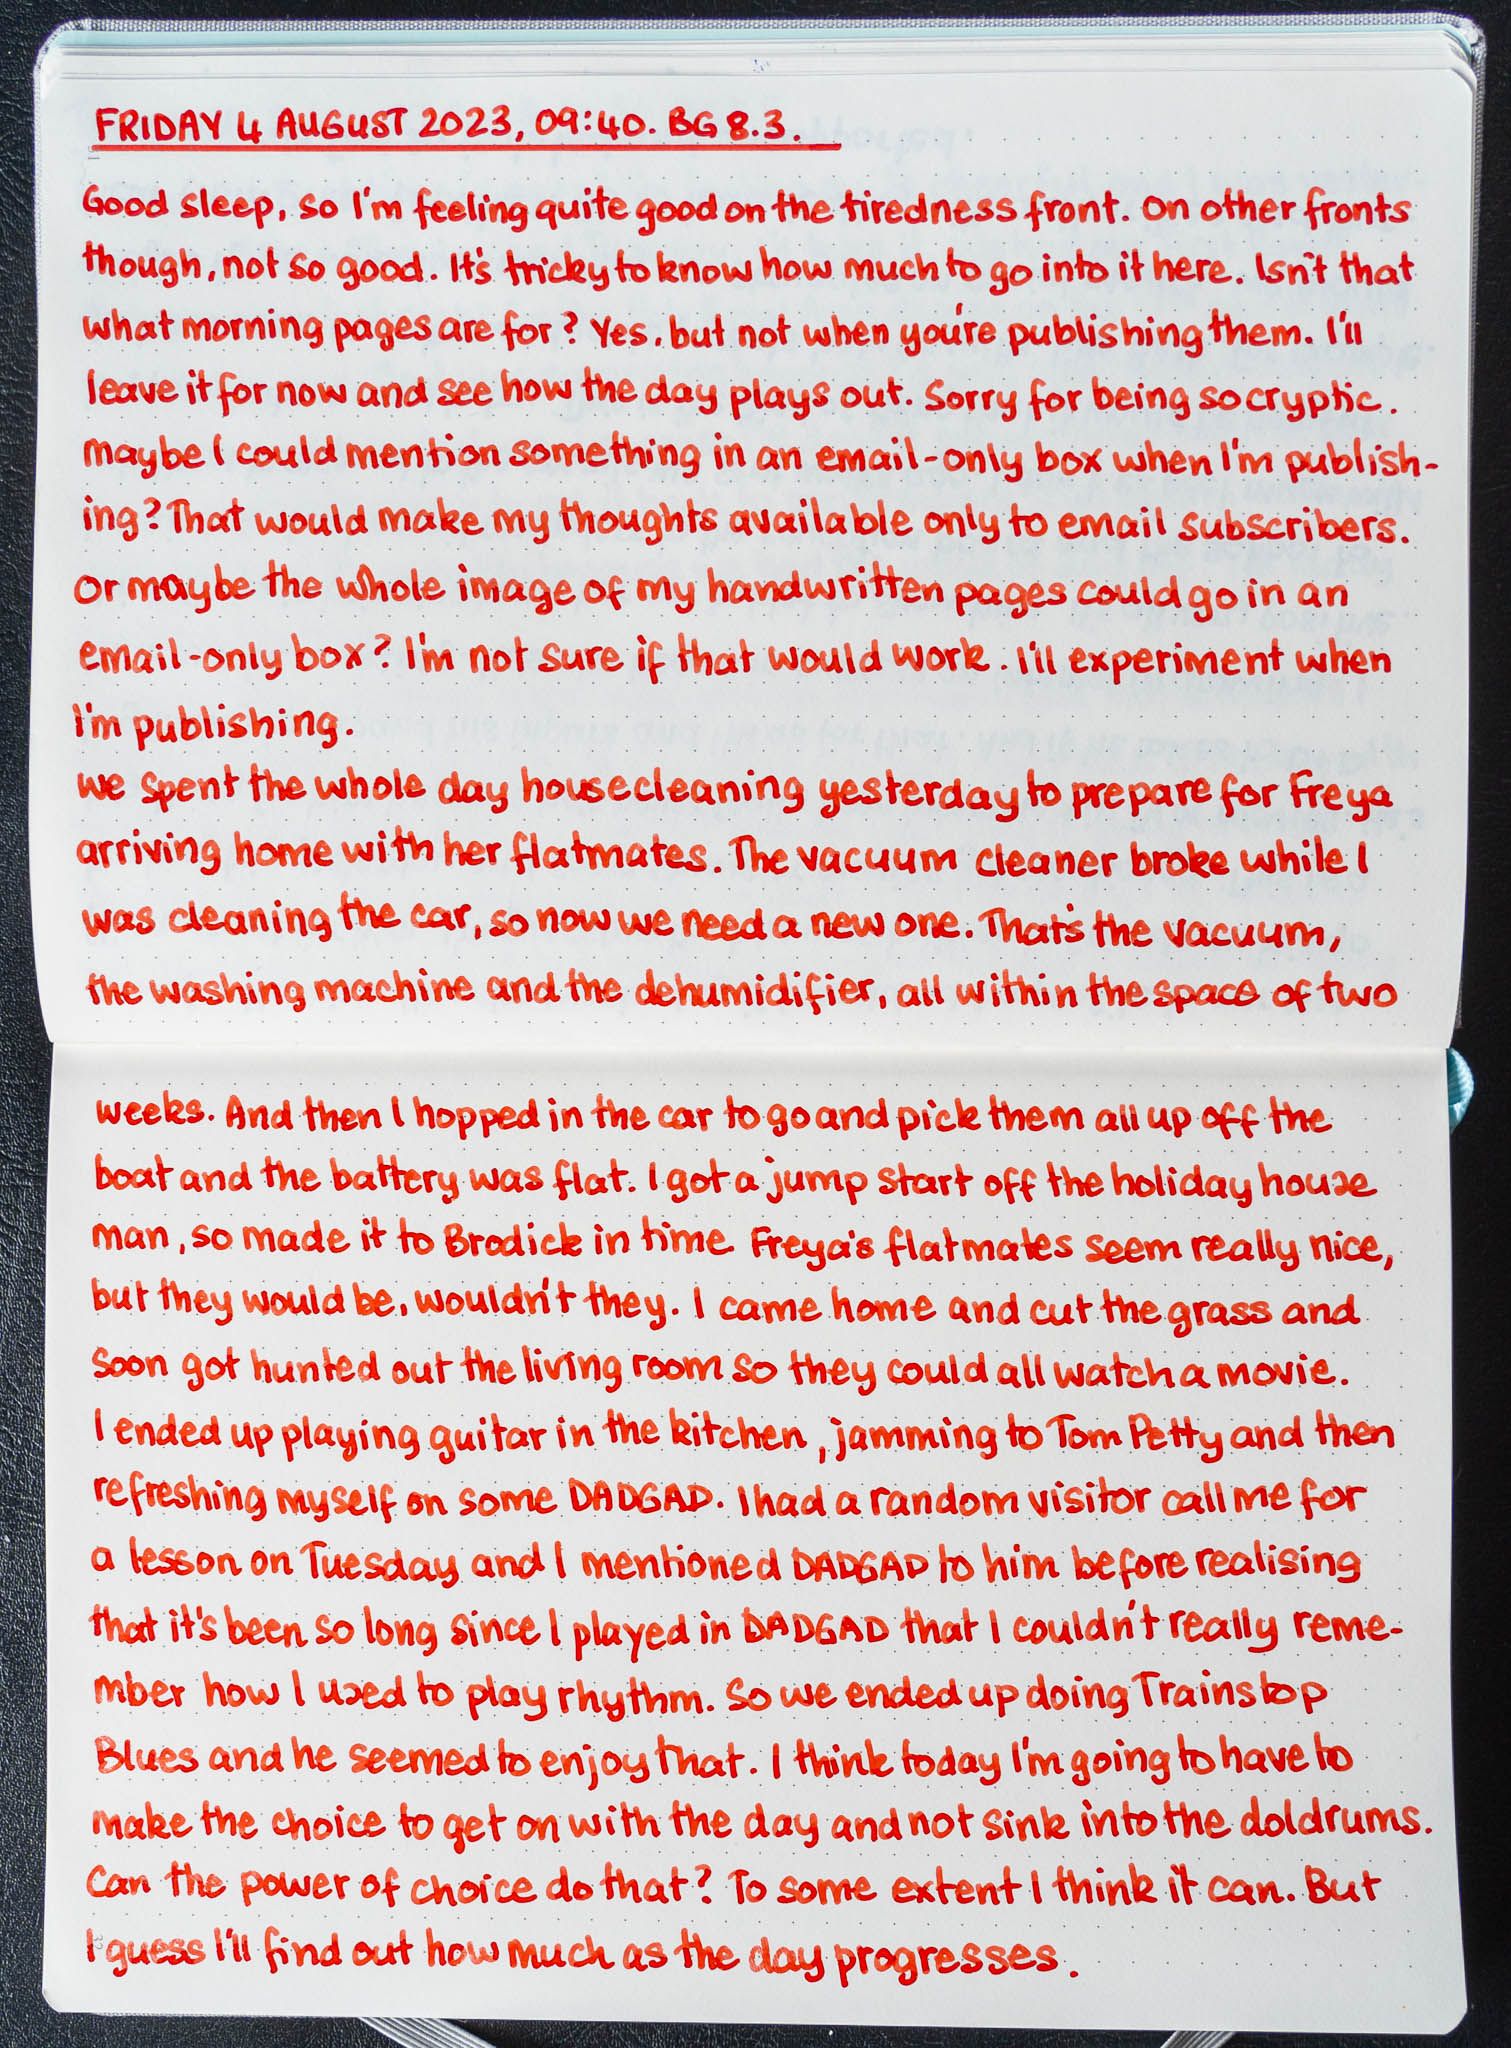 FRIDAY 4 AUGUST 2023, 09:40. BG 8.3.
Good sleep, so I'm feeling quite good on the tiredness front. On other fronts
though, not so good. It's tricky to know how much to go into it here. Isn't that
what morning pages are for? Yes, but not when you're publishing them. I'll
leave it for now and see how the day plays out. Sorry for being so cryptic.
Maybe I could mention something in an email-only box when I'm publish-
ing? That would make my thoughts available only to email subscribers.
Or maybe the whole image of my handwritten pages could go in an
email-only box? I'm not sure if that would work. I'll experiment when
I'm publishing.
We spent the whole day housecleaning yesterday to prepare for Freya
arriving home with her flatmates. The vacuum cleaner broke while I
was cleaning the car, so now we need a new one. That's the vacuum,
the washing machine and the dehumidifier, all within the space of two
weeks. And then I hopped in the car to go and pick them all up off the
boat and the battery was flat. I got a jump start off the holiday house
man, so made it to Brodick in time. Freya's flatmates seem really nice,
but they would be, wouldn't they. I came home and cut the grass and
soon got hunted out the living room so they could all watch a movie.
I ended up playing guitar in the kitchen, jamming to Tom Petty and then
refreshing myself on some DADGAD. I had a random visitor call me for
a lesson on Tuesday and I mentioned DADGAD to him before realising
that it's been so long since I played in DADGAD that I couldn't really reme-
mber how I used to play rhythm. So we ended up doing Trainstop
Blues and he seemed to enjoy that. I think today I'm going to have to
make the choice to get on with the day and not sink into the doldrums.
Can the power of choice do that? To some extent I think it can. But
I guess I'll find out how much as the day progresses.